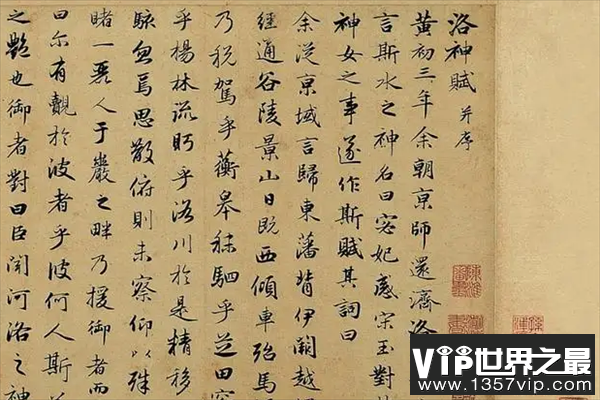 洛神賦 并序
黄初三年余朝京師還濟洛
言斯水之神名曰宓妃感宋玉對
神女之事遂作斯賦其詞曰
余從京域言歸東藩背伊闕越
經通谷陵景山日既西傾車殆馬
乃税駕乎蘅皋秣駟乎芝田
乎楊林流眄乎洛川於是精移
駭忽焉思散俯則未察仰以殊
睹一麗人于巖之畔乃援御者而
曰尔有覿於彼者乎彼何人斯
之艷也御者對曰臣聞河洛之神
VIP世界之最
www.1357vip.com